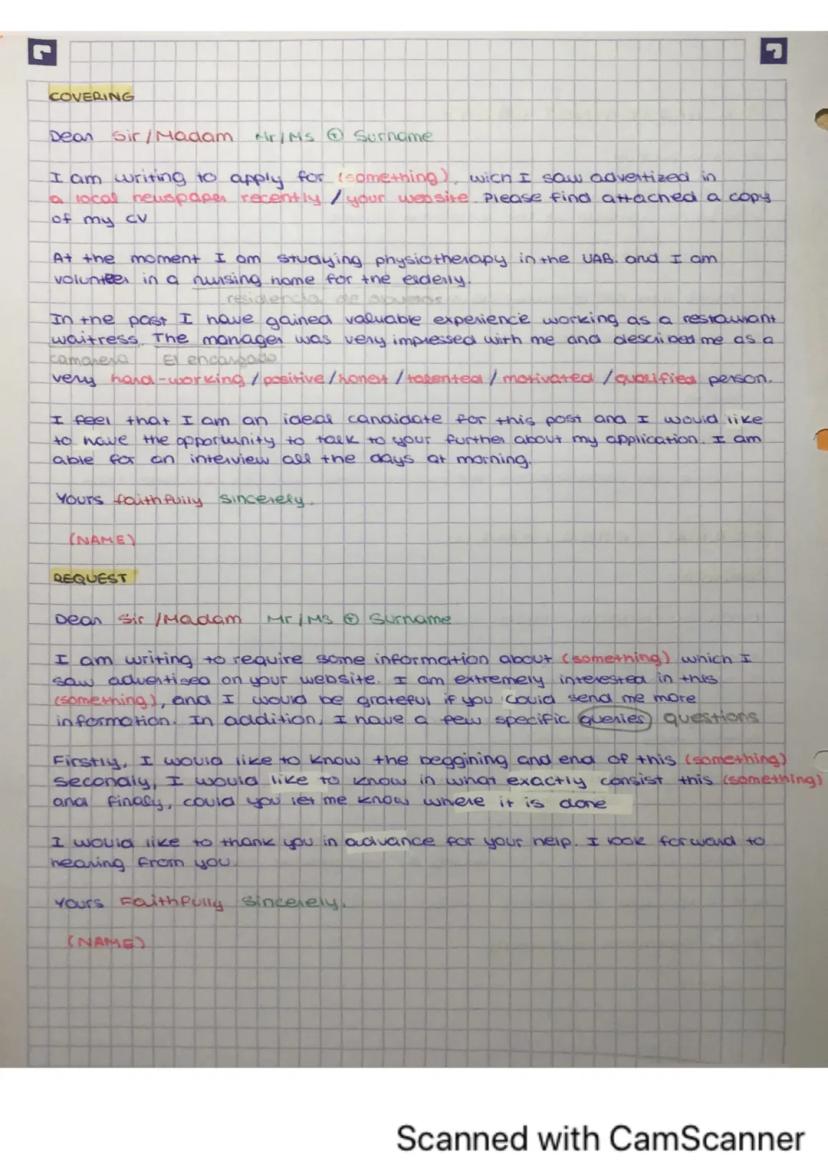 COVERING
Dear Sir/Madam Mr/Ms + Surname
I am writing to apply for (something), wich I saw advertized in
a local newspaper recently / your website. Please find attached a copy
of my CV
At the moment I am studying physiotherapy in the UAB. and I am
volunteer in a nursing home for the elderly.
residencia de abuelos
In the past I have gained valuable experience working as a restaurant
waitress. The manager was very impressed with me and described me as a
camarera El encargado
very hard-working / positive / honest / talented / motivated / qualified person.
I feel that I am an ideal candidate for this post and I would like
to have the opportunity to talk to your further about my application. I am
able for an interview all the days at morning.
Yours faithfully sincerely.
(NAME)
REQUEST
Dear Sir /Madam Mr/Ms + Surname
I am writing to require some information about (something) which I
saw advertised on your website. I am extremely interested in this
(something), and I would be grateful if you could send me more
information. In addition, I have a few specific queries questions
Firstly, I would like to know the beggining and end of this (something)
secondly, I would like to know in what exactly consist this (something)
and finally, could you let me know where it is done
I would like to thank you in advance for your help. I look forward to
hearing from you
Yours Faithfully sincerely.
(NAME)
Scanned with CamScanner